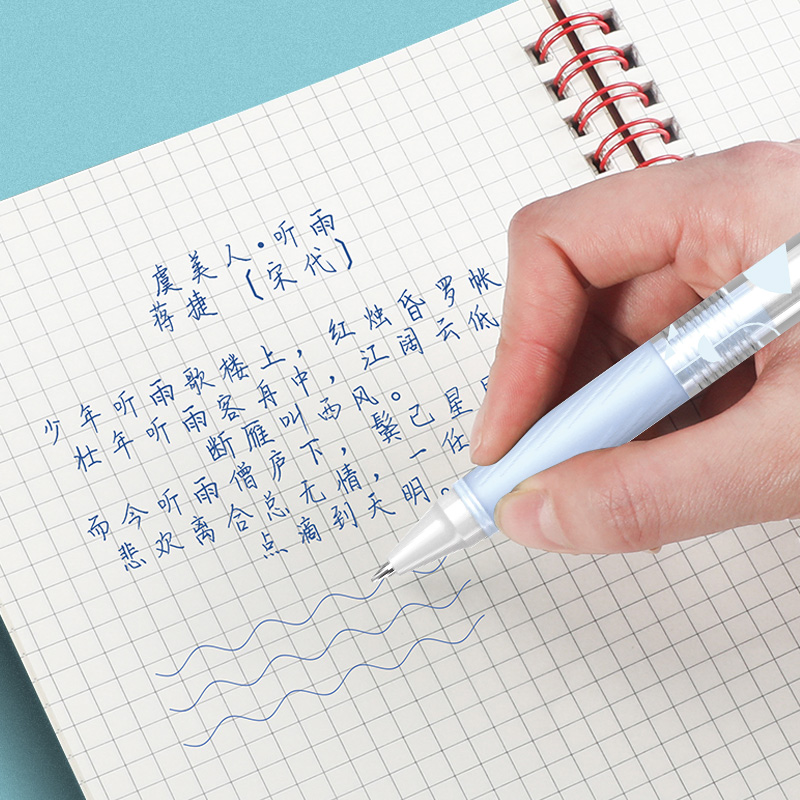 虞美人·听雨
蒋捷（宋代）
少年听雨歌楼上，红烛昏罗帐
壮年听雨客舟中，江阔云低
断雁叫西风。
而今听雨僧庐下，鬓已星
悲欢离合总无情，一任
点滴到天明。